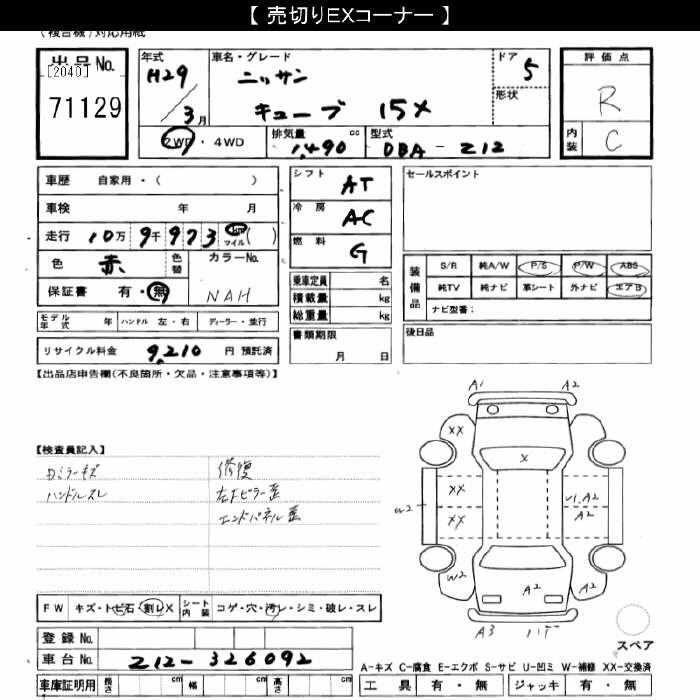 【 売切りEXコーナー 】
(複合機)対応用紙
出品No.
[2040]
71129
年式
H29
3月
車名・グレード
ニッサン
キューブ 15X
ドア
5
形状
2WD・4WD
排気量 cc
1,490
型式
DBA-Z12
評価点
R
内装
C
車歴 自家用・( )
車検 年 月
走行 10万 9千 9 7 3 km マイル ( )
色 赤 色替 カラーNo.
保証書 有・無 NAH
モデル年式 年 ハンドル 左・右 ディーラー・並行
リサイクル料金 9,210 円 預託済
シフト AT
冷房 AC
燃料 G
乗車定員 名
積載量 kg
総重量 kg
書類期限
月 日
セールスポイント
装備品
S/R 純A/W P/S P/W ABS
純TV 純ナビ 革シート 外ナビ エアB
ナビ型番:
後日品
【出品店申告欄(不良箇所・欠品・注意事項等)】
【検査員記入】
Dミラーキズ 修復
ハンドルスレ 左Fピラー歪
エンドパネル歪
A1 A2
XX XX
X
W2 XX W1,A2
XX A2
W2 A2 A2
A3
スペア
FW キズ・トビ石 割レX シート内装 コゲ・穴・汚レ・シミ・破レ・スレ
登録No.
車台No. Z12-326092
車庫証明用 長さ cm 幅 cm 高さ cm
A-キズ C-腐食 E-エクボ S-サビ U-凹ミ W-補修 XX-交換済
工具 有・無 ジャッキ 有・無